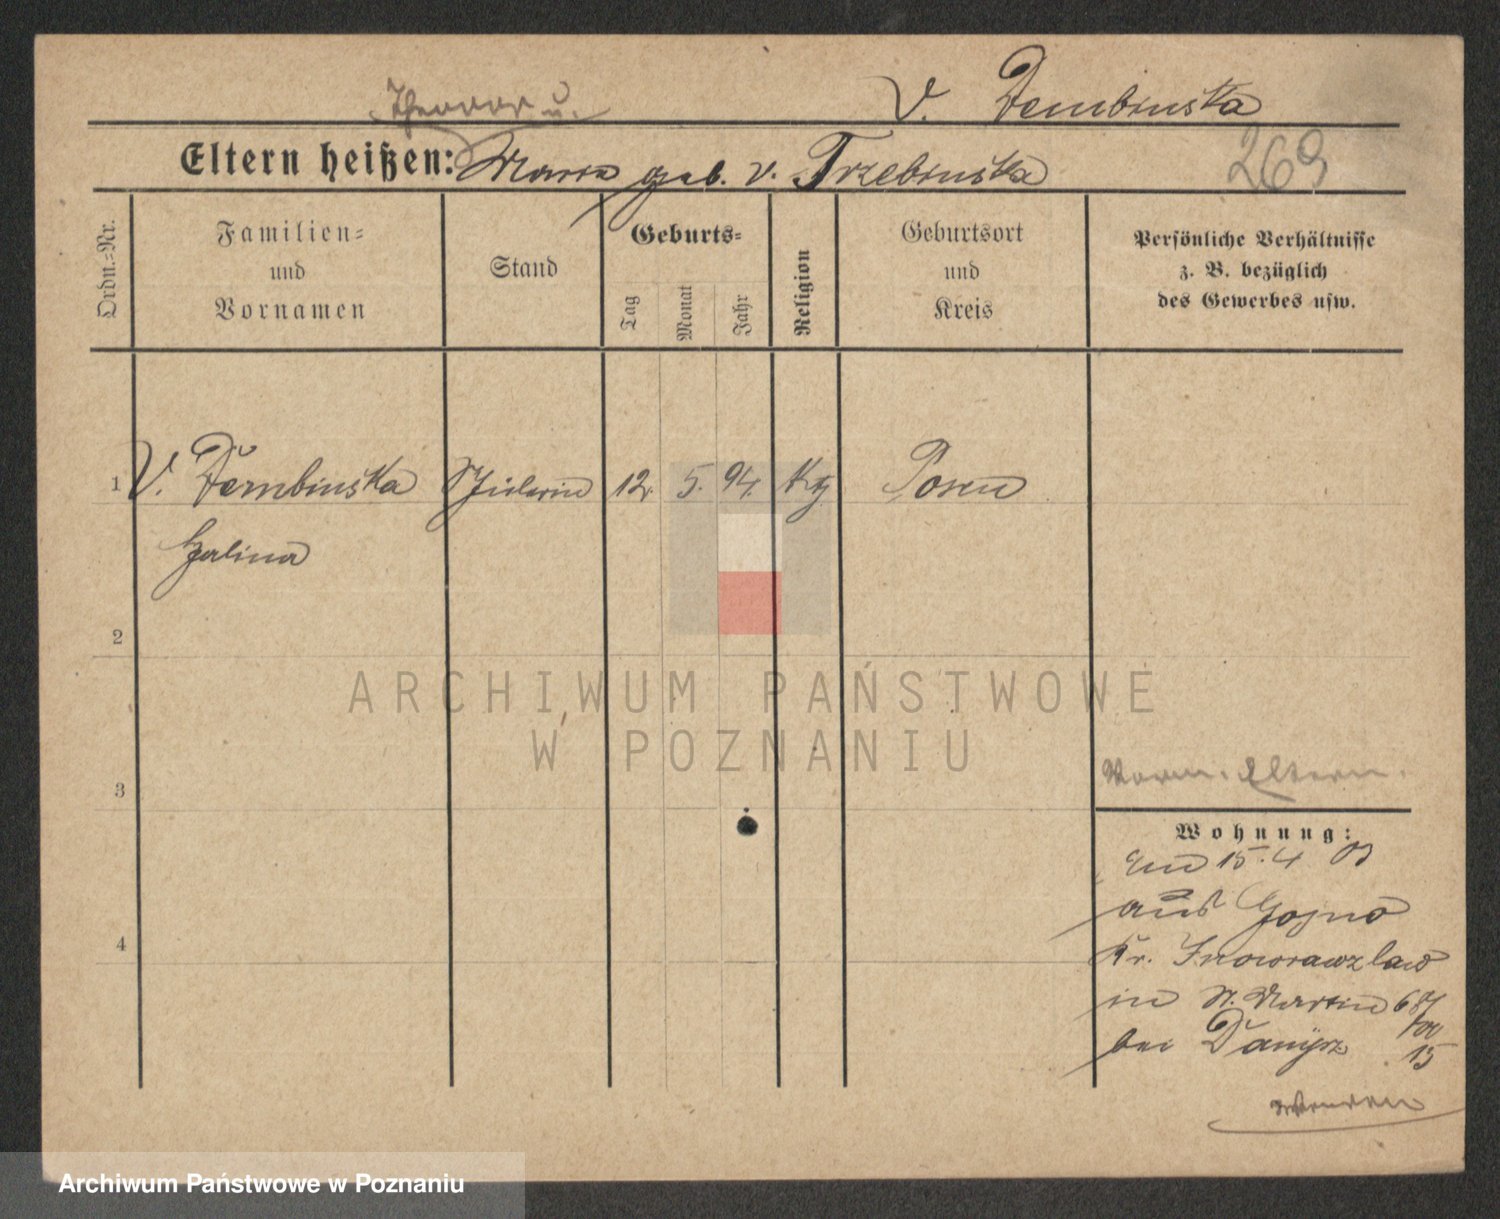 v. Dembinska
Theodor u.
Eltern heißen: Maria geb. v. Trzebinska
269
Ordn.=Nr.
Familien=
und
Vornamen
Stand
Geburts=
Tag
Monat
Jahr
Religion
Geburtsort
und
Kreis
Persönliche Verhältnisse
z. B. bezüglich
des Gewerbes usw.
1 v. Dembinska Schülerin 12. 5. 94. Kg Posen
Halina
2
ARCHIWUM PAŃSTWOWE
W POZNANIU
3
Eltern.
Wohnung:
15. 4
aus Gojno
Kr. Inowrazlaw
4
in St. Martin 68
bei Danysz 15
Wenden
Archiwum Państwowe w Poznaniu